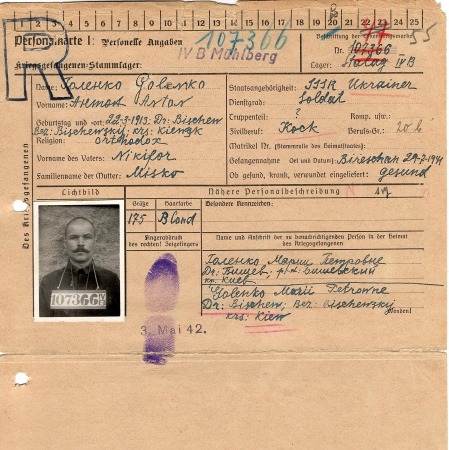 1 2 3 4 5 6 7 8 9 10 11 12 13 14 15 16 17 18 19 20 21 22 23 24 25
Personalkarte I: Personelle Angaben
107366
IV B Mühlberg
Beschriftung der Erkennungsmarke
Nr. 107366
Kriegsgefangenen-Stammlager:
Lager: Stalag IV B
55
R
Name: Галенко Golenko
Staatsangehörigkeit: SSSR Ukrainer
Vorname: Антон Anton
Dienstgrad: Soldat
Geburtstag und -ort: 22-3-1913. Dr: Bischew
Truppenteil: ? Komp. usw.:
Bez: Bischewskij, krs: Kiewsk
Zivilberuf: Kock Berufs-Gr.: 20 b
Religion: orthodox
Matrikel Nr. (Stammrolle des Heimatstaates):
Vorname des Vaters: Nikifor
Gefangennahme (Ort und Datum):
Familienname der Mutter: Misko
Ob gesund, krank, verwundet eingeliefert: gesund
Des Kriegsgefangenen
Lichtbild
Nähere Personalbeschreibung
Größe Haarfarbe Besondere Kennzeichen:
175 Blond
Fingerabdruck
des rechten! Zeigefingers
Name und Anschrift der zu benachrichtigenden Person in der Heimat
des Kriegsgefangenen
Галенко, Мария Петровне
Golenko Marii Petrowne
Dr: Bischew, Bez: Bischewskij
krs: Kiew
wenden!
107366 IV B
3. Mai 42.